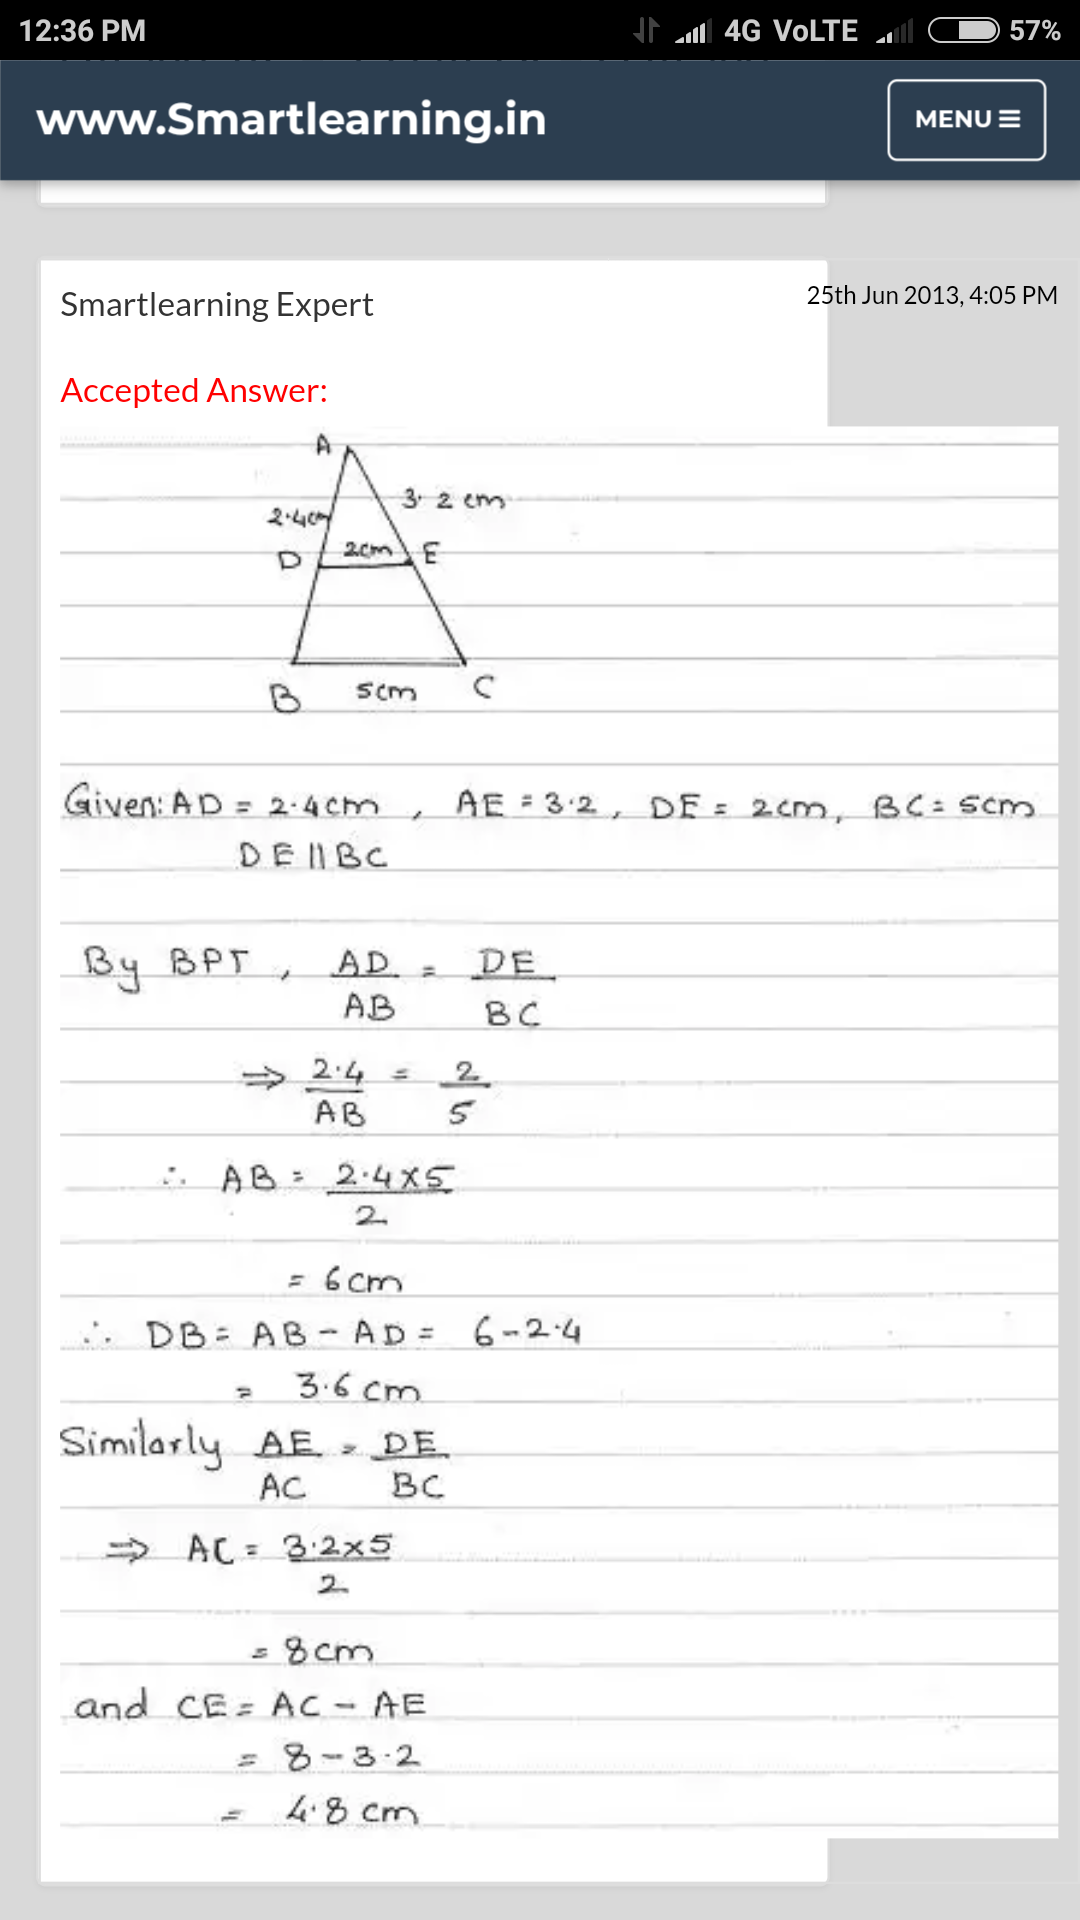 12:36 PM 4G VoLTE 57%
www.Smartlearning.in MENU
Smartlearning Expert 25th Jun 2013, 4:05 PM
Accepted Answer:
A
3.2 cm
2.4cm
D 2cm E
B 5cm C
Given: AD = 2.4cm , AE = 3.2 , DE = 2cm, BC = 5cm
DE || BC
By BPT , AD/AB = DE/BC
⇒ 2.4/AB = 2/5
∴ AB = 2.4×5/2
= 6cm
∴ DB = AB - AD = 6-2.4
= 3.6 cm
Similarly AE/AC = DE/BC
⇒ AC = 3.2×5/2
= 8cm
and CE = AC - AE
= 8-3.2
= 4.8 cm